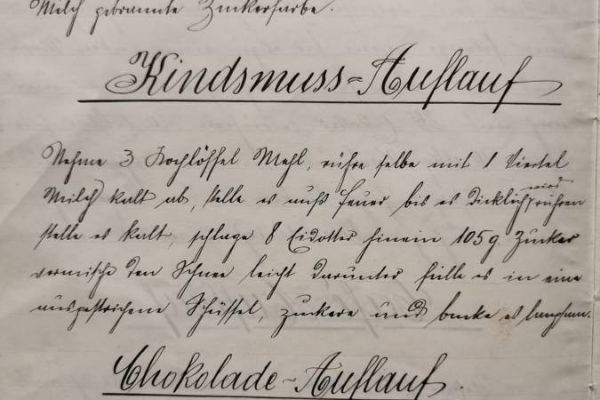 Milch gebrannte Zuckerfarbe.
Kindsmuss-Auflauf
Nehme 3 Kochlöffel Mehl, rühre selbe mit 1 Viertel
Milch kalt ab, stelle es aufs Feuer bis es dicklich wird, rühren
stelle es kalt, schlage 8 Eidotter hinein 105 g Zucker
vermische den Schnee leicht darunter fülle es in eine
ausgestrichene Schüssel, zuckere und backe es langsam.
Chokolade-Auflauf.